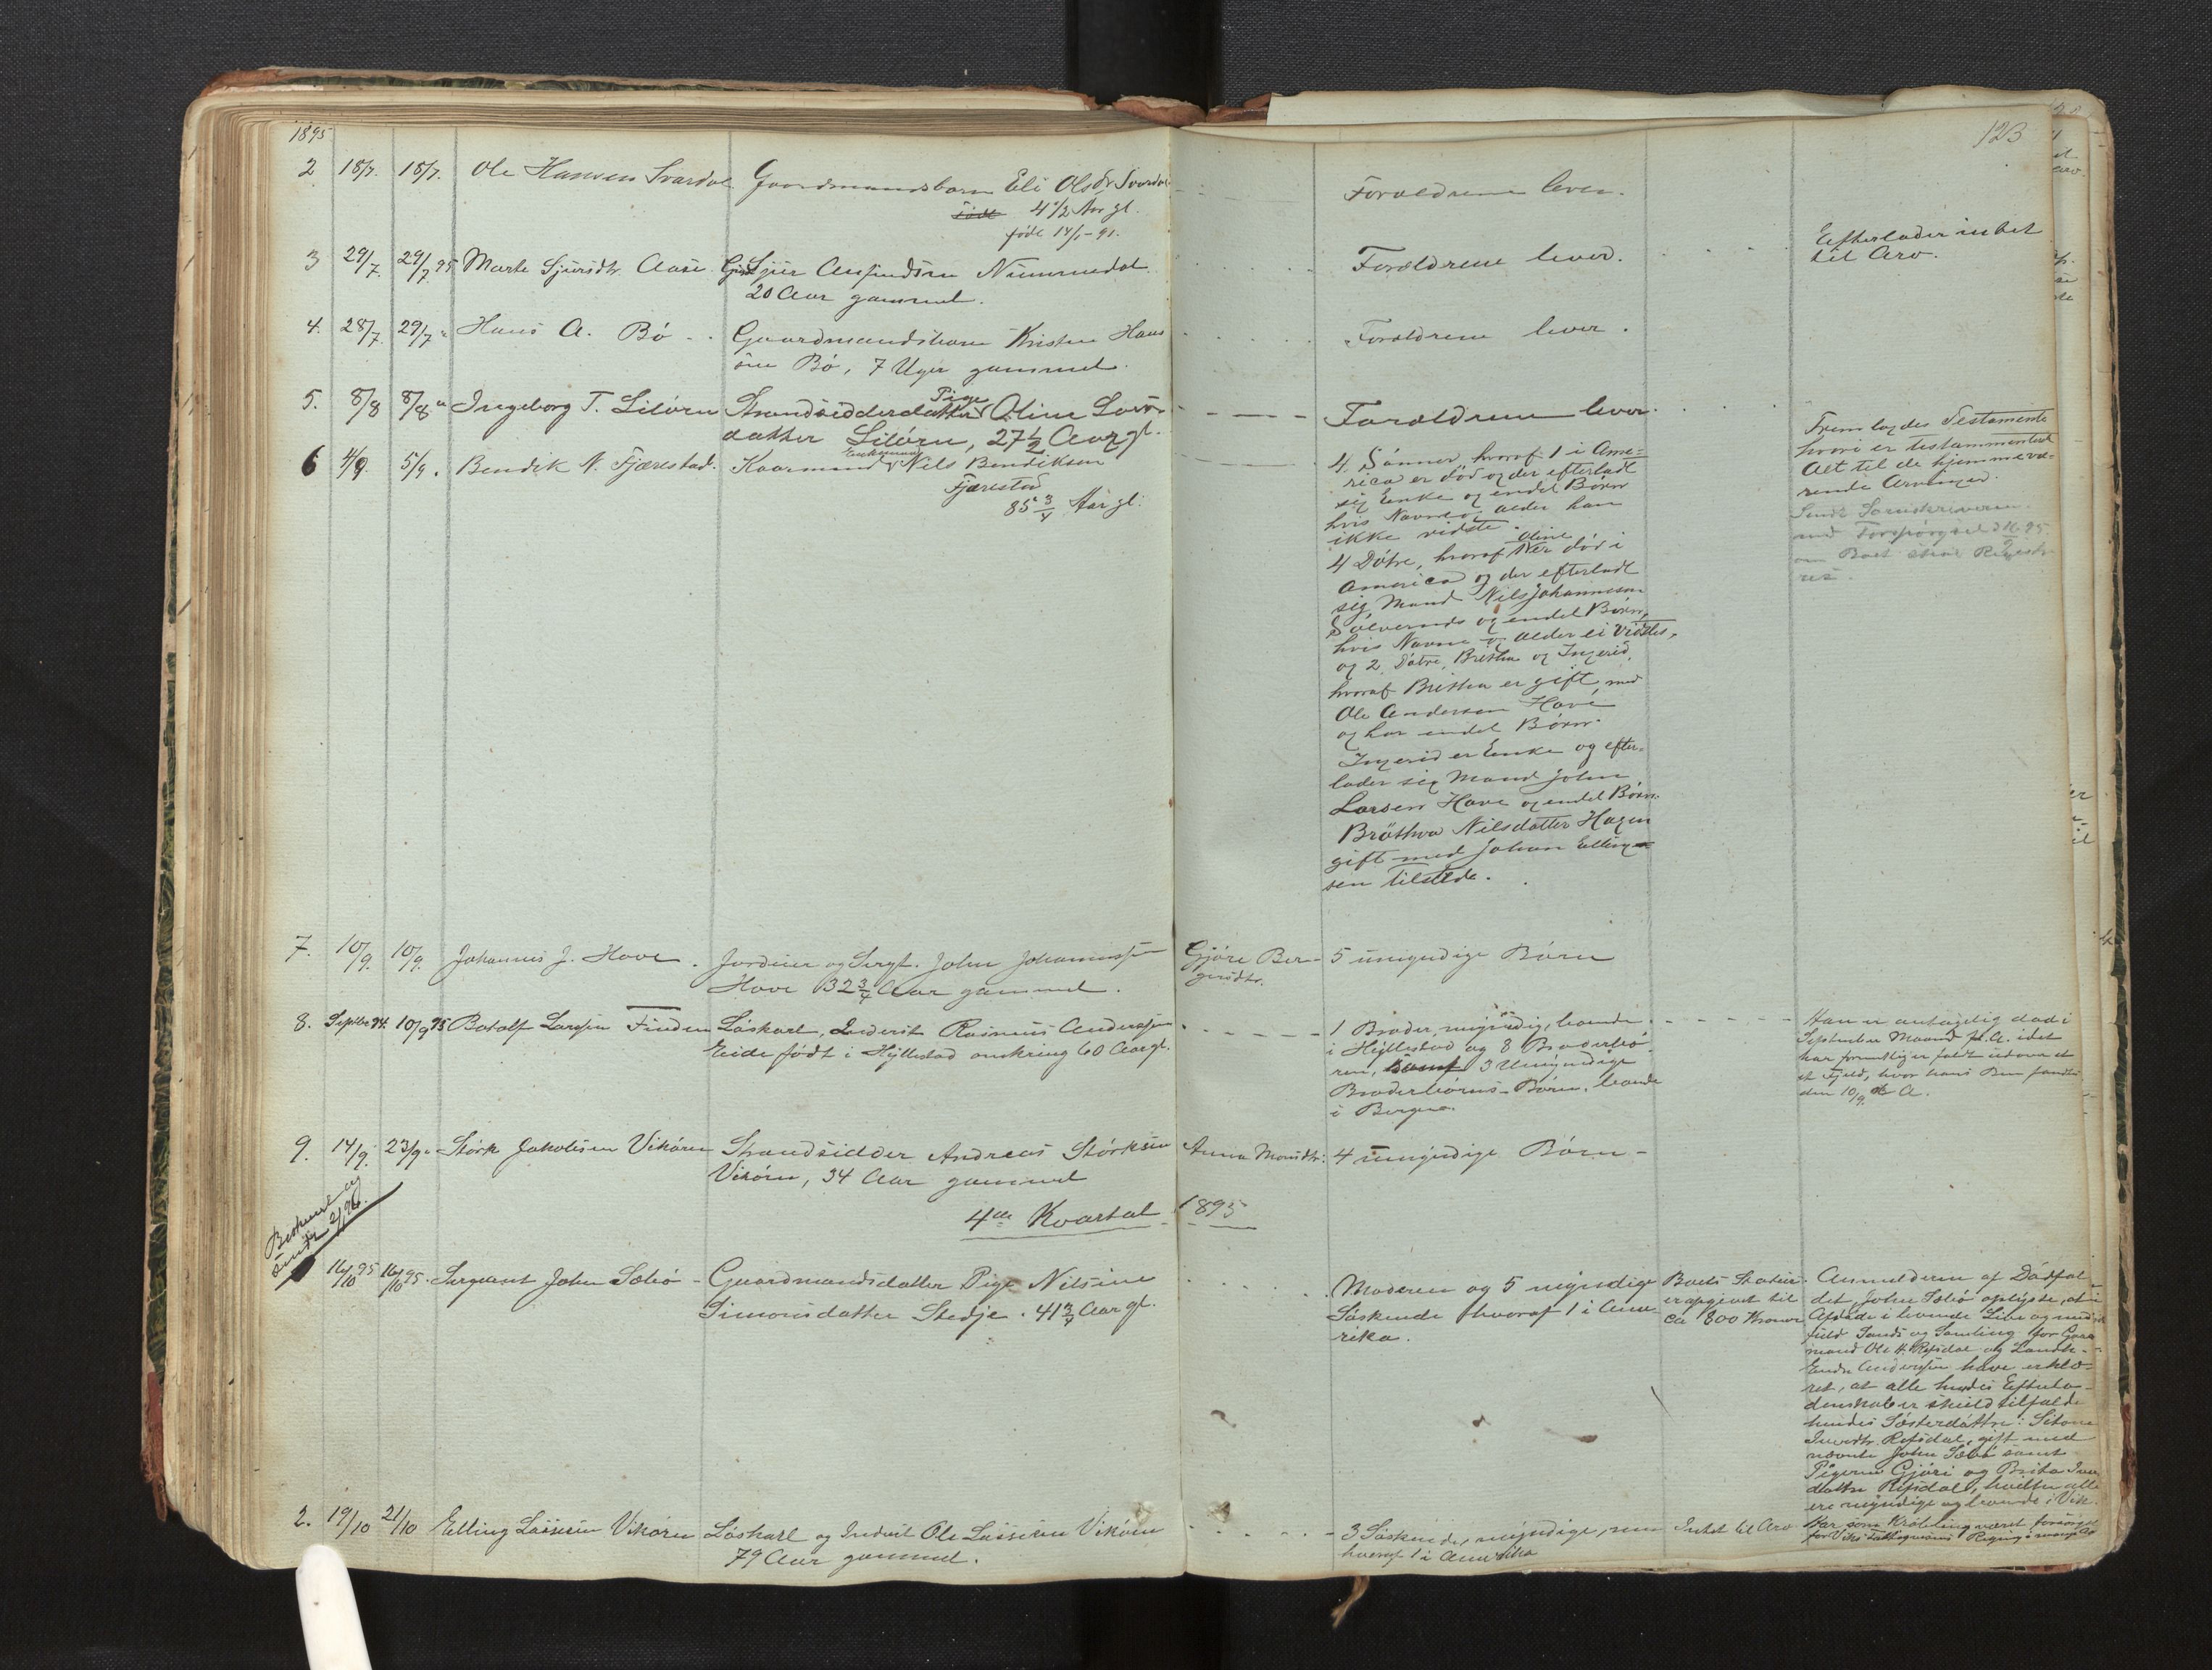 1895
123
2 18/7. 18/7. Ole Hansen Svardal. Gaardmandsbarn Eli Olsdr Svardal
4 1/2 Aar gl.
født 14/1-91.
Forældrene lever.
3 29/7. 29/7 95 Marte Sjursdtr. Aase
Sjur Ansfindsen Nummedal.
20 Aar gammel.
Forældrene lever.
Efterlader intet
til Arv.
4. 28/7 29/7 " Hans A. Bö
Gaardmandsbarn Kristen Hans
sen Bö, 7 Uger gammel.
Forældrene lever.
5. 8/8 8/8 " Ingeborg T. Liløren
Strandsidderdatter Pige Oline Lars-
datter Liløren, 27 1/2 Aar gl.
Forældrene lever.
6 4/9. 5/9. Bendik N. Fjærestad.
Kaarmand Enkemand Nils Bendiksen
Fjærestad
85 3/4 Aar gl.
4 Sönner, hvoraf 1 i Ame-
rica er död og der efterladt
sig Enke og endel Börn
hvis Navne og alder han
ikke vidste.
4 Dötre, hvoraf Oline er död i
America og der efterladt
sig Mand Nils Johannesen
Sölvernds og endel Börn,
hvis Navne og alder ei vidstes,
og 2 Dötre, Britha og Ingerid,
hvoraf Britha er gift med
Ole Andersen Hove
og har endel Börn.
Ingerid er Enke og efter-
lader sig Mand John
Larsen Hove og endel Börn.
Bröthva Nilsdatter Hagen
gift med Johan Elling-
sen tilstede.
Fremlagdes Testamente
hvori er testammenteret
Alt til de hjemmevæ-
rende Arvinger.
Sendt Sorenskriveren
med Forespörgsel
om Boet skal Registre-
res.
7. 10/9. 10/9. Johannes J. Hove.
Jordeier og Sergt. John Johannessen
Hove 32 3/4 Aar gammel.
Gjöre Ber-
gersdtr.
5 umyndige Børn
8. Septbr 94. 10/9 95 Botolf Larssen Finden
Løskarl, Inderst Rasmus Anderssen
Eide født i Hyllestad omkring 60 Aar gl.
1 Broder, myndig, boende
i Hyllestad og 8 Broderbø-
ren, samt 3 Umyndige
Broderbörns-Børn, boende
i Bergen.
Han er antagelig død i
September Maaned f. A. idet
han formentlig er faldt udover et
et Fjeld, hvor hans Ben fandtes
den 10/9 d. A.
9. 14/9. 23/9 " Størk Jakobsen Vikøren
Strandsidder Andreas Størksen
Vikøren, 34 Aar gammel
Anna Monsdtr.
4 umyndige Børn -
4de Kvartal 1895
16/10 95 16/10 95. Sergeant John Sæbø -
Gaardmandsdatter Pige Nilsine
Simonsdatter Stedje. 41 3/4 Aar gl.
Moderen og 5 myndige
Søskende hvoraf 1 i Ame-
rika.
Boets Status
er opgivet til
ca 800 Kroner
Anmelderen af Dødsfal-
det, John Sæbø oplyste, at
Afdøde i levende Live og med
fuld Sands og Samling for Gaard-
mand Ole H. Refsdal og Landh.
Endre Anderssen have erklæ-
ret, at alle hendes Efterla-
denskaber skulde tilfalde
hendes Søsterdøttre: Sitone
Iversdtr. Refsdal, gift med
nævnte John Sæbø samt
Pigerne Gjöri og Brita Ivers
døttre Refsdal, hvilke alle
ere myndige og boende i Vik.
2. 19/10 21/10 Elling Lassesen Vikøren
Løskarl og Inderst Ole Lassesen Vikøren
79 Aar gammel.
3 Søskende, myndige,
hvoraf 1 i Amerika
Intet til Arv
Har som Kröbling været forsørget
for Viks Fattigvæsens Regning i mange Aar